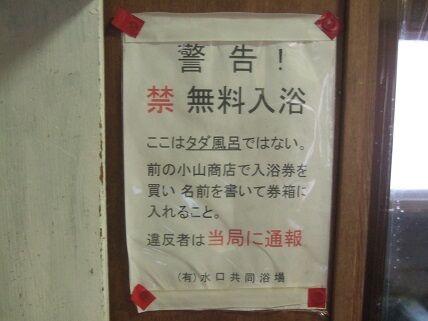 警告！
禁 無料入浴
ここはタダ風呂ではない。
前の小山商店で入浴券を
買い 名前を書いて券箱に
入れること。
違反者は当局に通報
(有)水口共同浴場